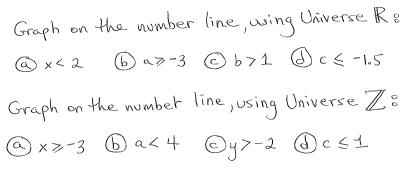 Graph on the number line, using Universe ℝ:
ⓐ x < 2 ⓑ a ⩾ -3 ⓒ b > 1 ⓓ c ≤ -1.5
Graph on the number line, using Universe ℤ:
ⓐ x ⩾ -3 ⓑ a < 4 ⓒ y > -2 ⓓ c ≤ 1